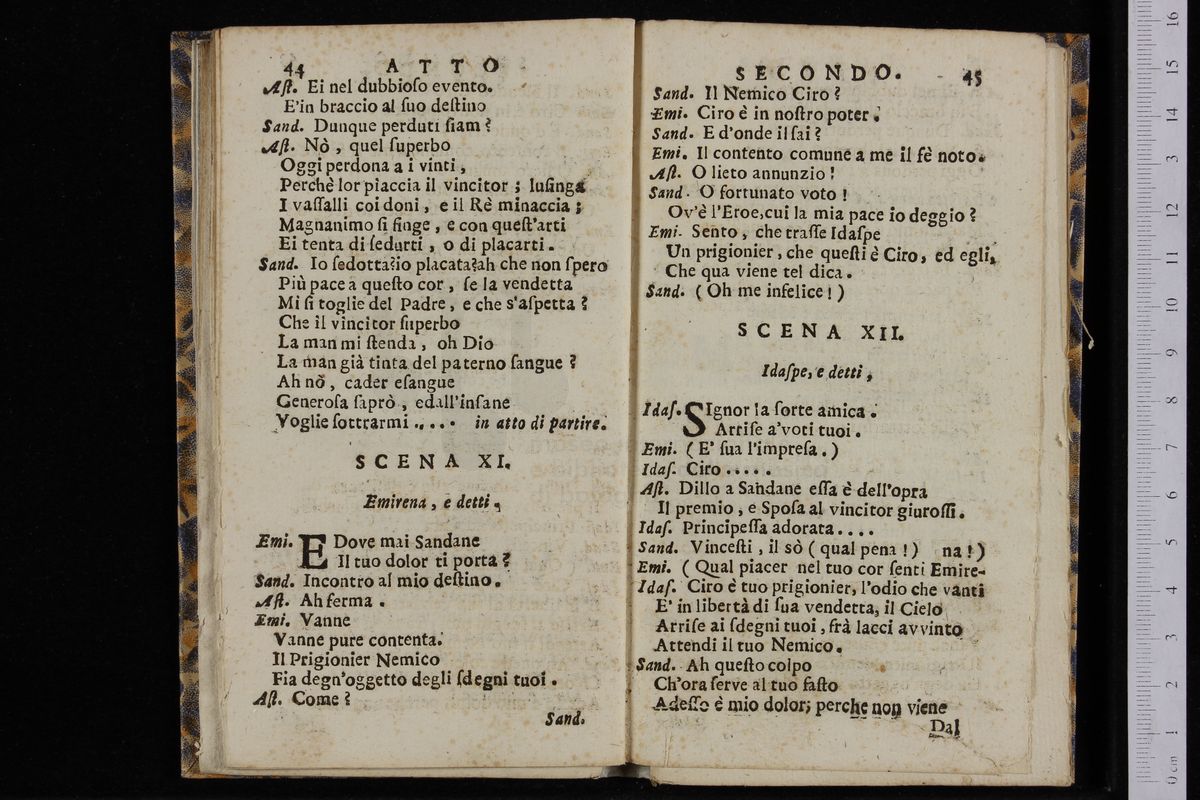 44 ATTO
Aſt. Ei nel dubbioſo evento.
E'in braccio al ſuo deſtino
Sand. Dunque perduti ſiam?
Aſt. Nò, quel ſuperbo
Oggi perdona a i vinti,
Perchè lor piaccia il vincitor; luſinga
I vaſſalli coi doni, e il Rè minaccia;
Magnanimo ſi finge, e con queſt'arti
Ei tenta di ſedurti, o di placarti.
Sand. Io ſedotta?io placata?ah che non ſpero
Più pace à queſto cor, ſe la vendetta
Mi ſi toglie del Padre, e che s'aſpetta?
Che il vincitor ſuperbo
La man mi ſtenda, oh Dio
La man già tinta del paterno ſangue?
Ah nò, cader eſangue
Generoſa ſaprò, edall'inſane
Voglie ſottrarmi ..... in atto di partire.
SCENA XI.
Emirena, e detti,
Emi. E Dove mai Sandane
Il tuo dolor ti porta?
Sand. Incontro al mio deſtino.
Aſt. Ah ferma.
Emi. Vanne
Vanne pure contenta.
Il Prigionier Nemico
Fia degn'oggetto degli ſdegni tuoi.
Aſt. Come?
Sand.
SECONDO. 45
Sand. Il Nemico Ciro?
Emi. Ciro è in noſtro poter.
Sand. E d'onde il ſai?
Emi. Il contento comune a me il fè noto.
Aſt. O lieto annunzio!
Sand. O fortunato voto!
Ov'è l'Eroe,cui la mia pace io deggio?
Emi. Sento, che traſſe Idaſpe
Un prigionier, che queſti è Ciro, ed egli,
Che qua viene tel dica.
Sand. (Oh me infelice!)
SCENA XII.
Idaſpe, e detti,
Idaſ. SIgnor la ſorte amica.
Arriſe a'voti tuoi.
Emi. (E' ſua l'impreſa.)
Idaſ. Ciro.....
Aſt. Dillo a Sandane eſſa è dell'opra
Il premio, e Spoſa al vincitor giuroſſi.
Idaſ. Principeſſa adorata....
Sand. Vinceſti, il sò (qual pena!) na!)
Emi. (Qual piacer nel tuo cor ſenti Emire-
Idaſ. Ciro è tuo prigionier, l'odio che vanti
E' in libertà di ſua vendetta, il Cielo
Arriſe ai ſdegni tuoi, frà lacci avvinto
Attendi il tuo Nemico.
Sand. Ah queſto colpo
Ch'ora ſerve al tuo faſto
Adeſſo è mio dolor; perche non viene
Dal
16
15
14
13
12
11
10
9
8
7
6
5
4
3
2
1
0 cm